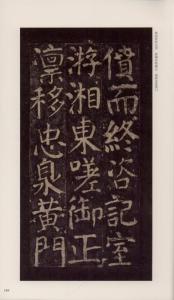 憤而終咨記室
游湘東嗟御正
凛移忠臮黄門